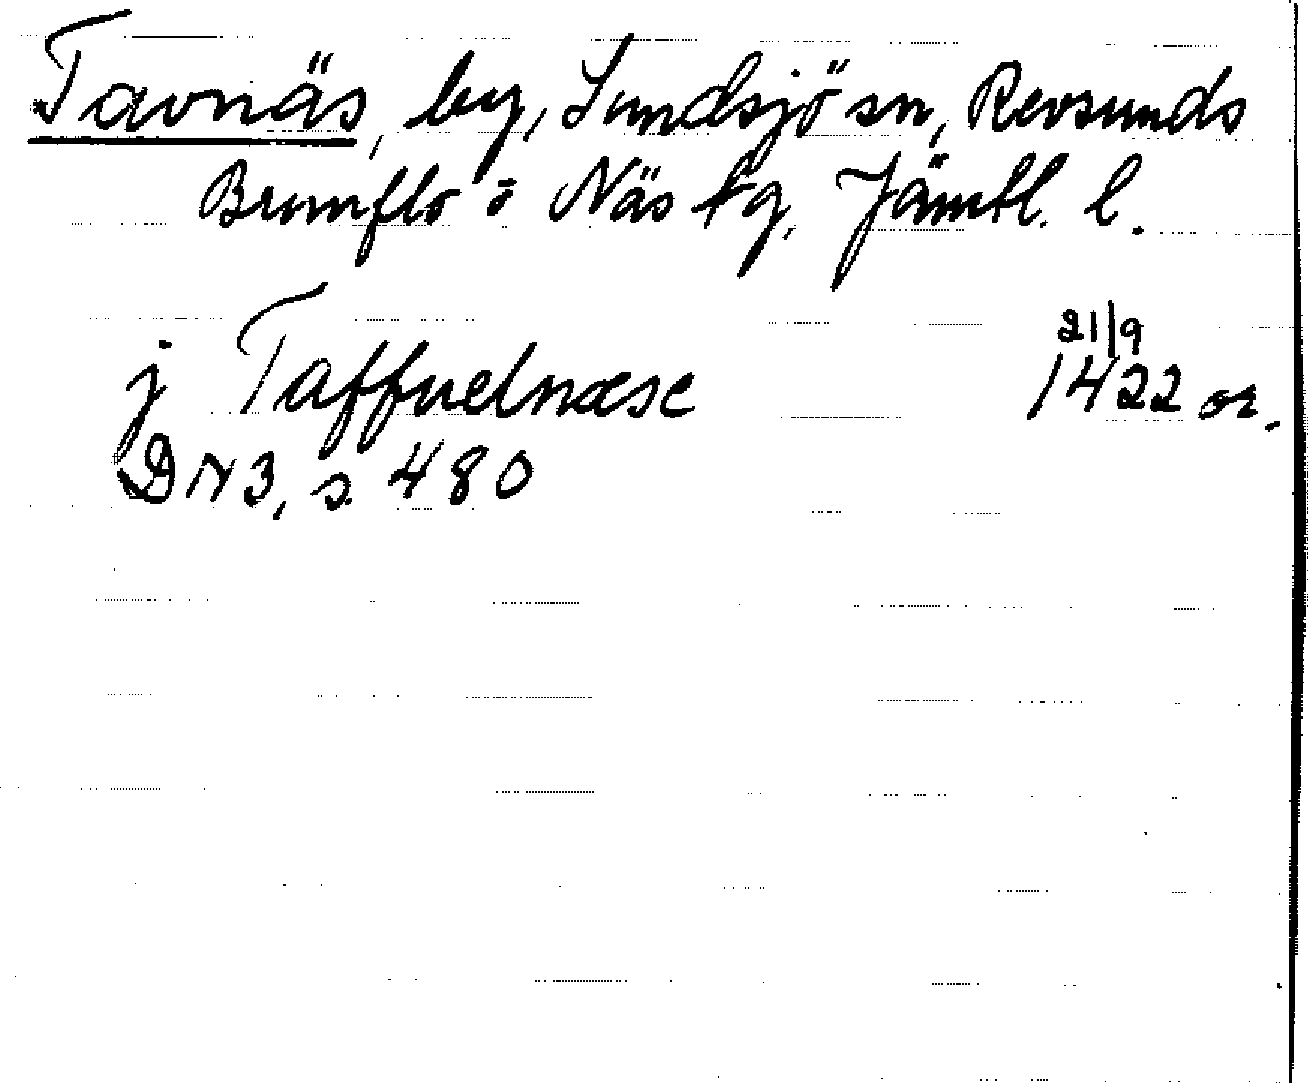 Tavnäs, by, Sundsjö sn, Revsunds
Brunflo o Näs tg, Jämtl. l.
j Taffuelnæse 21/9 1422 or.
DN 3, s. 480